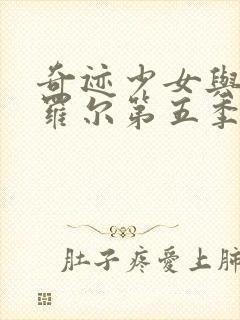 奇迹少女與
羅尔第五季
肚子疼愛上肺